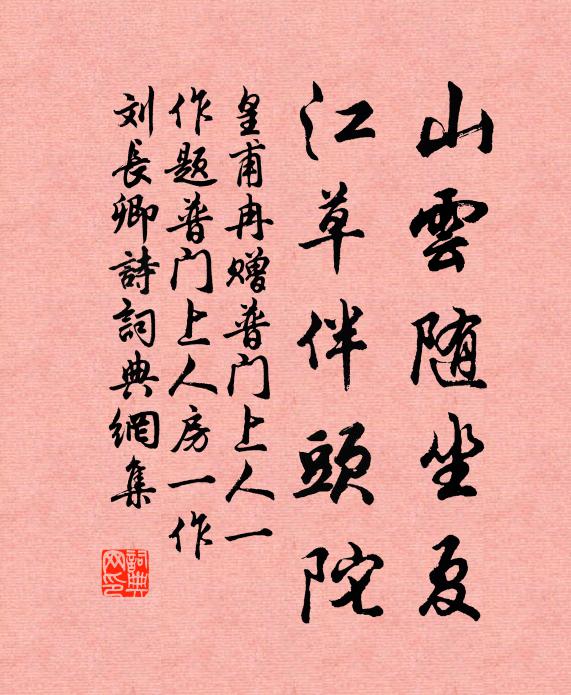 山雲随坐夏
江草伴頭陀
皇甫冉赠普门上人一
作題普门上人房一作
刘長卿詩詞典網集
詞典网印